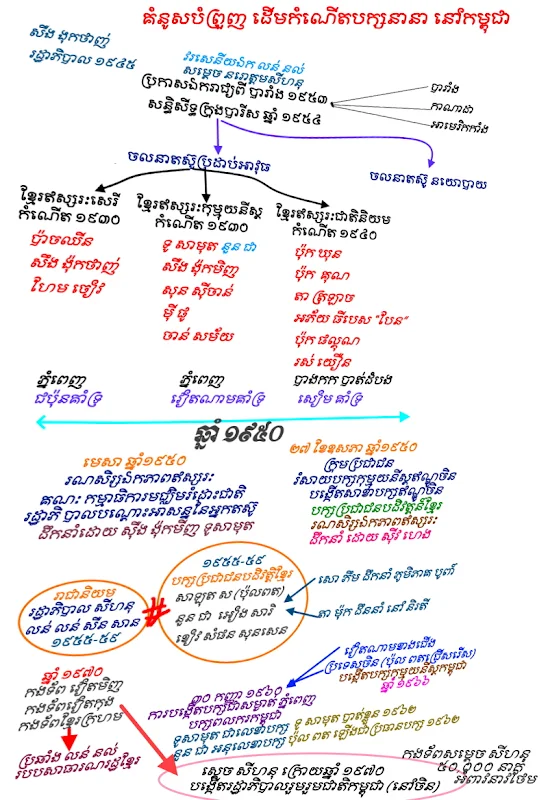 គំនូសបំព្រួញ ដើមកំណើតបក្សនានា នៅកម្ពុជា
សឺង ង៉ុកថាញ់
រដ្ឋាភិបាល ១៩៤៥
វរសេនីយ៍ឯក លន់ នល់
សម្ដេច នរោត្តមសីហនុ
ប្រកាសឯករាជ្យពី បារាំង ១៩៥៣
សន្និសីទ្ធក្រុងបារីស ឆ្នាំ ១៩៥៤
បារាំង
កាណាដា
អាមេរិកកាំង
ចលនាតស៊ូប្រដាប់អាវុធ
ចលនាតស៊ូ នយោបាយ
ខ្មែរឥស្សរៈសេរី
កំណើត ១៩៣០
ប៉ាចឈឺន
សឺង ង៉ុកថាញ់
ហែម ចៀវ
ភ្នំពេញ
ជប៉ុនគាំទ្រ
ខ្មែរឥស្សរៈកុម្មុយនីស្ត
កំណើត ១៩៣០
ទូ សាមុត នួន ជា
សឺង ង៉ុកមិញ
សុន ស៊ីចាន់
ម៉ី ផូ
ចាន់ សម័យ
ភ្នំពេញ
វៀតណាមគាំទ្រ
ខ្មែរឥស្សរៈជាតិនិយម
កំណើត ១៩៤០
ប៉ុក ឃុន
ប៉ុក គុណ
តា ត្រឡាច
អភ័យ ធីបេស "បែន"
ប៉ុក ផល្គុណ
រស់ យឿន
បាងកក បាត់ដំបង
សៀម គាំទ្រ
ឆ្នាំ ១៩៥០
មេសា ឆ្នាំ១៩៥០
រណសិរ្សឯកភាពឥស្សរៈ
គណៈ កម្មាធិការមជ្ឈិមរំដោះជាតិ
រដ្ឋាភិ បាលបណ្ដោះអាសន្ននៃអ្នកតស៊ូ
ដឹកនាំដោយ សឺង ង៉ុកមិញ ទូសាមុត
២៧ ខែឧសភា ឆ្នាំ១៩៥០
ក្រុមប្រជាជន
រំសាយបក្សកុម្មុយនីស្តឥណ្ឌូចិន
បង្កើតសាខាបក្សឥណ្ឌូចិន
បក្សប្រជាជនបដិវត្តន៍ខ្មែរ
រណសិរ្សឯកភាពឥស្សរៈ
ដឹកនាំ ដោយ ស៊ីវ ហេង
រាជានិយម
រដ្ឋាភិបាល សីហនុ
លន់ លន់ ស៊ឹន សាន
១៩៥៥-៥៩
#
១៩៥៥-៥៩
បក្សប្រជាជនបដិវត្តិខ្មែរ
សាឡុត ស (ប៉ុលពត)
នួន ជា អៀង សារី
ខៀវ សំផន សុនសេន
សោ ភឹម ដឹកនាំ ភូមិភាគ បូព៌
តា ម៉ុក ដឹននាំ នៅ និរតី
វៀតណាមខាងជើង
ប្រទេសចិន (ប៉ុល ពតជ្រើសរើស)
បង្កើតបក្សកុម្មុយនីស្តកម្ពុជា
ឆ្នាំ ១៩៦៦
៣០ កញ្ញា ១៩៦០
ការបង្កើតបក្សជាសម្ងាត់ ភ្នំពេញ
បក្សពលករកម្ពុជា
ទូសាមុត ជាលេខាបក្ស ទូ សាមុត បាត់ខ្លួន ១៩៦២
នួន ជា អនុលេខាបក្ស ប៉ុល ពត ឡើងជាប្រធានបក្ស ១៩៦២
ឆ្នាំ ១៩៧០
កងទ័ព វៀតមិញ
កងទ័ពវៀតកុង
កងទ័ពខ្មែរក្រហម
ប្រឆាំង លន់ នល់
របបសាធារណរដ្ឋខ្មែរ
កងទ័ពសម្ដេច សីហនុ
៥០,០០០ នាក់
អំពាវនាវថែម
ស្ដេច សីហនុ ក្រោយឆ្នាំ ១៩៧០
បង្កើតរដ្ឋាភិបាលរួមរួមជាតិកម្ពុជា (នៅចិន)